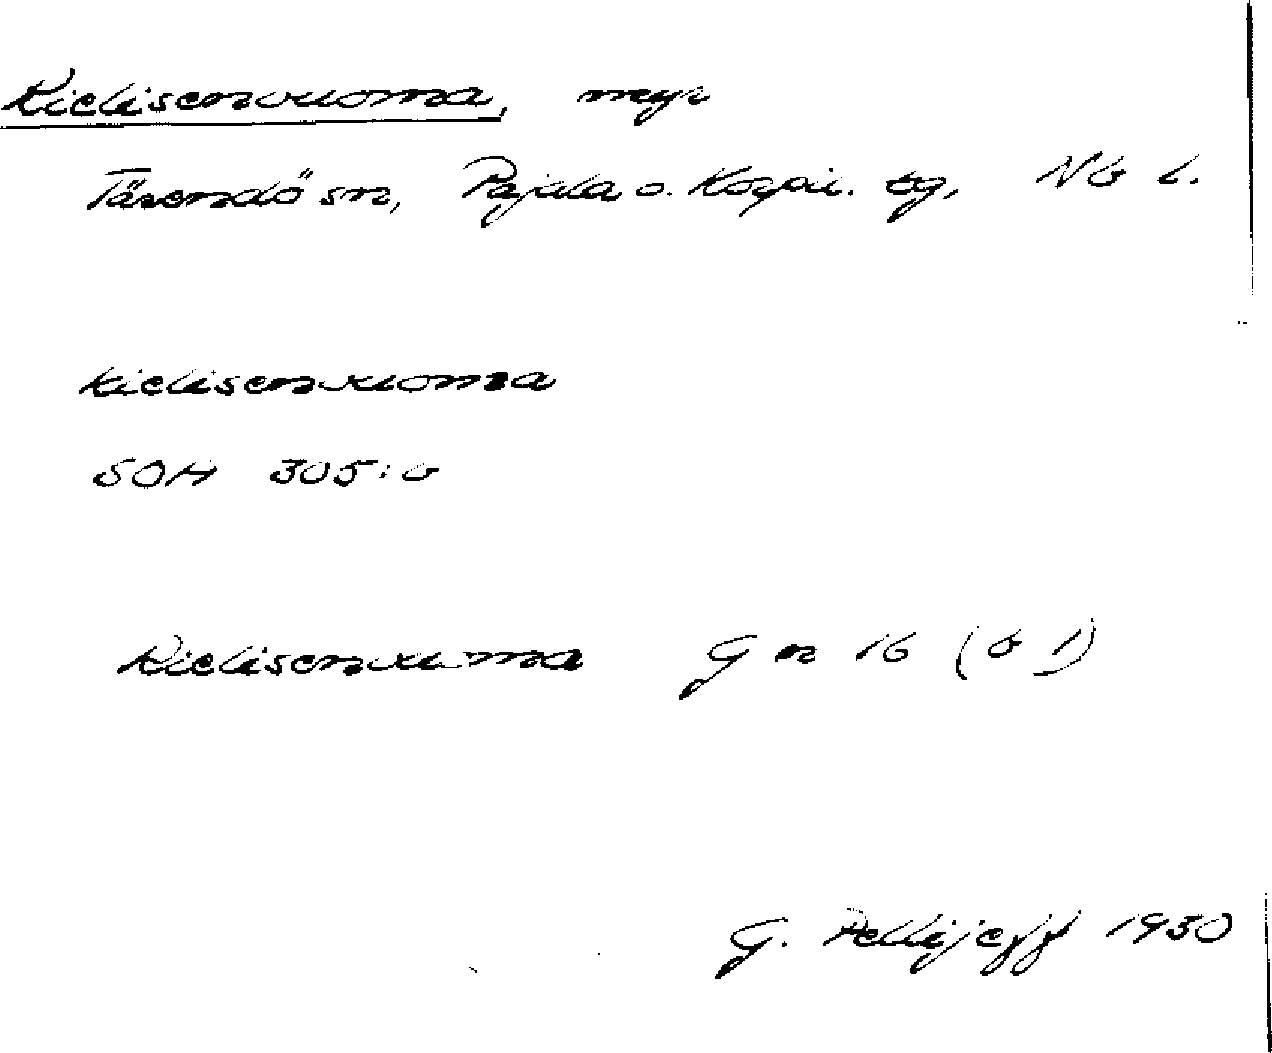 Kielisenvuoma, myr
Tärendö sn, Pajala o. Korpil. tg, Nb l.
kielisenvuoma
SOH 305:6
Kielisenvuoma G n 16 (b 1)
G. Pellijeff 1950